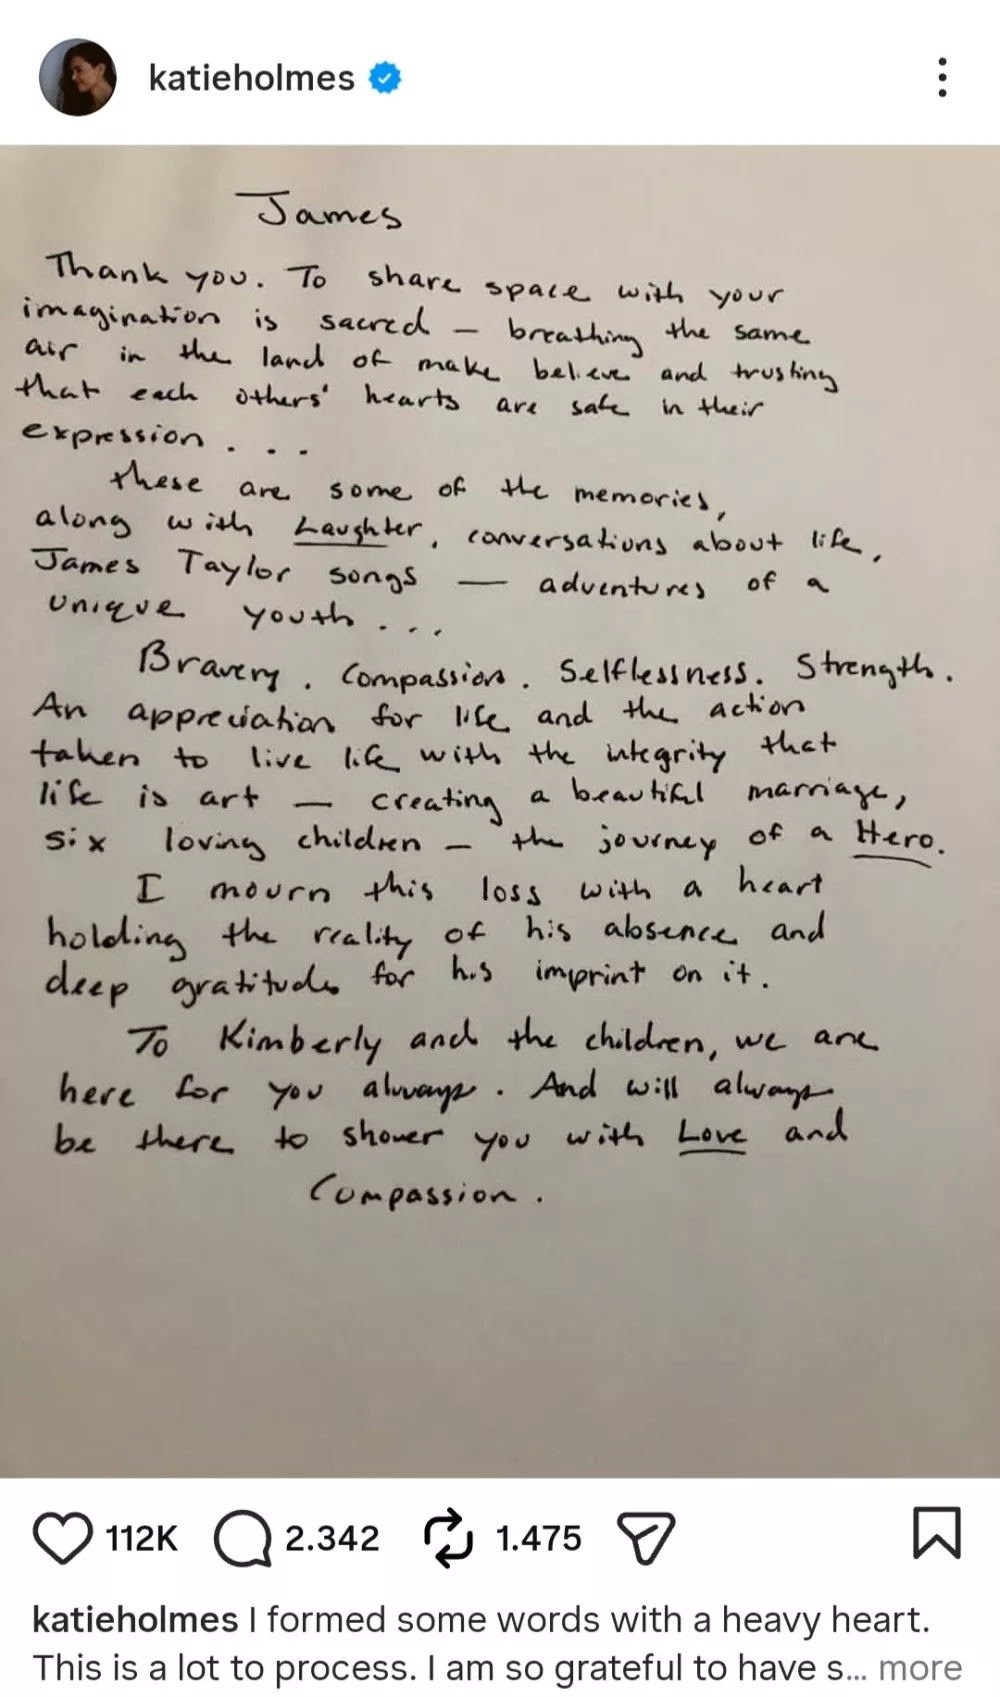 katieholmes
James
Thank you. To share space with your
imagination is sacred – breathing the same
air in the land of make believe and trusting
that each others' hearts are safe in their
expression . . .
these are some of the memories,
along with Laughter, conversations about life,
James Taylor songs — adventures of a
unique youth . . .
Bravery. Compassion. Selflessness. Strength.
An appreciation for life and the action
taken to live life with the integrity that
life is art – creating a beautiful marriage,
six loving children – the journey of a Hero.
I mourn this loss with a heart
holding the reality of his absence and
deep gratitude for his imprint on it.
To Kimberly and the children, we are
here for you always. And will always
be there to shower you with Love and
Compassion.
112K 2.342 1.475
katieholmes I formed some words with a heavy heart.
This is a lot to process. I am so grateful to have s... more